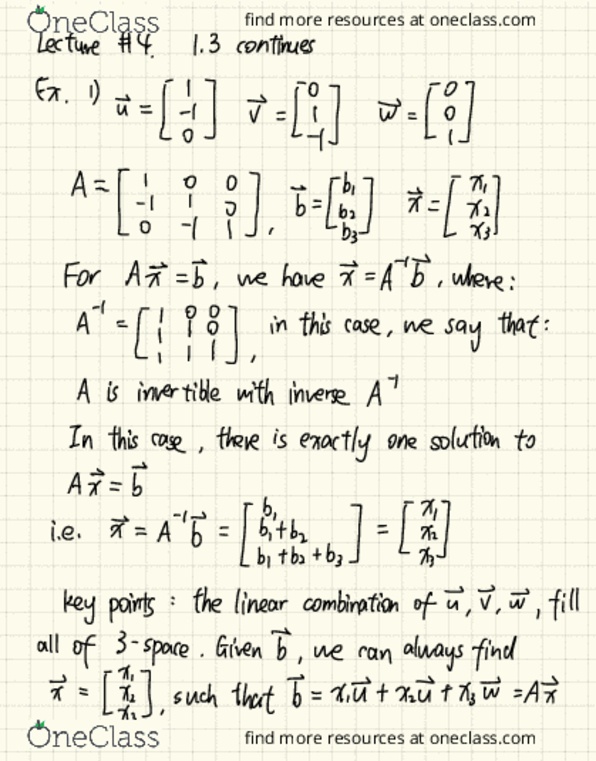 OneClass find more resources at oneclass.com
Lecture #4. 1.3 continues
Ex. 1) u⃗ = [1 -1 0] v⃗ = [0 1 -1] w⃗ = [0 0 1]
A = [1 0 0; -1 1 0; 0 -1 1], b⃗ = [b₁ b₂ b₃] x⃗ = [x₁ x₂ x₃]
For Ax⃗ = b⃗, we have x⃗ = A⁻¹b⃗, where:
A⁻¹ = [1 0 0; 1 1 0; 1 1 1], in this case, we say that:
A is invertible with inverse A⁻¹
In this case, there is exactly one solution to
Ax⃗ = b⃗
i.e. x⃗ = A⁻¹b⃗ = [b₁; b₁+b₂; b₁+b₂+b₃] = [x₁ x₂ x₃]
key points : the linear combination of u⃗, v⃗, w⃗, fill
all of 3-space. Given b⃗, we can always find
x⃗ = [x₁ x₂ x₂], such that b⃗ = x₁u⃗ + x₂u⃗ + x₃w⃗ = Ax⃗
OneClass find more resources at oneclass.com